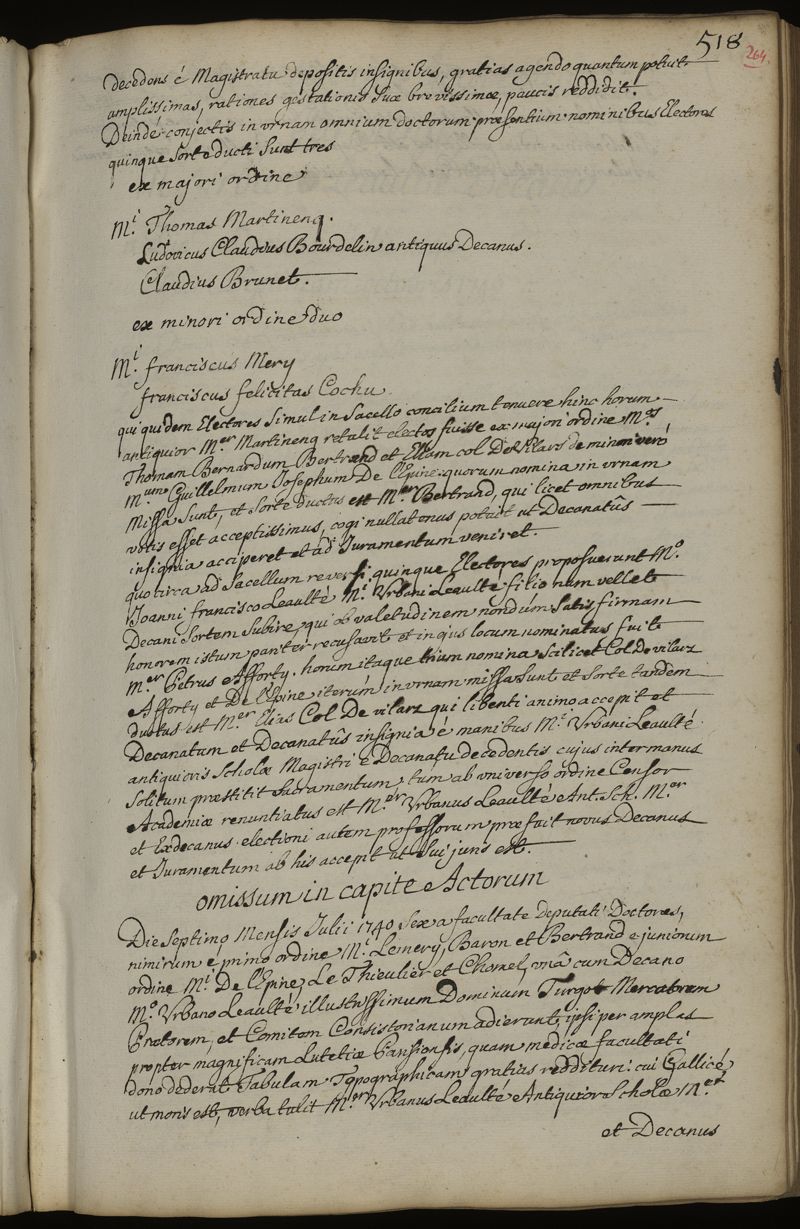 518
264.
decedens é Magistratu depositis insignibus, gratias agendo quantum potuit
amplissimas, rationes gestationis suæ brevissimæ, paucis reddidit.
Deindé conjectis in urnam omnium doctorum præsentium nominibus Electores
quinque sorte ducti sunt tres
ex majori ordine
M.i Thomas Martinenq.
Ludovicus Claudius Bourdelin antiquus Decanus.
Claudius Brunet.
ex minori ordine duo
M.i franciscus Mery
franciscus felicitas Cochu
qui quidem Electores simul in sacello concilium tenuere hinc horum
antiquior M.er Martinenq retulit electos fuisse ex majori ordine M.os
Thomam Bernardum Bertrand et Eliam col De Vilars de minori veró
M.um Guillelmum Josephum De l'Epine. quorum nomina in urnam
missa sunt, et sorte ductus est M.er Bertrand, qui licet omnibus
votis esset acceptissimus, cogi nullatenus potuit ut Decanatûs
insignia acciperet et ad Juramentum veniret.
quocirca ad sacellum reversi quinque Electores proposuerunt M.o
Joanni francisco Leaulté M.i Urbani Leaulté filio num vellet
Decani sortem subire, qui ob valetudinem nondúm satis firmam
honorem istum pariter recusavit et in ejus locum nominatus fuit
M.er Petrus Afforty. horum itaque trium nomina scilicet Col De vilars
Afforty et De l'Epine iterúm in urnam missa sunt et sorte tandem
ductus est M.er Elias Col De vilars qui libenti animo accepit et
Decanatum et Decanatûs insignia é manibus M.i Urbani Leaulté
antiquioris Scholæ Magistri é Decanatu decedentis cujus inter manus
solitum præstitit sacramentum, tum ab universo ordine Censor
Academiæ renuntiatus est M.er Urbanus Leaulté Ant. Sch. M.er
et Exdecanus. electioni autem professorum præfuit novus Decanus
et Juramentum ab his accepit ut sui juris est.
omissum in capite Actorum
Die septimo Mensis Julii 1740 Sex a facultate deputati Doctores,
nimirum é primo ordine M.i Lemery, Baron et Bertrand e juniorum
ordine M.i De l'Epine, Le Thieulier et Chomel, unâ cum Decano
M.o Urbano Leaulté illustrissimum Dominum Turgot Mercatorem
Prætorem, et Comitem Consistorianum adierunt, ipsi per amplas
propter magnificam Lutetiæ Parisiensis, quam medicæ facultati
dono dederat Tabulam Typographicam gratias reddituri: cui Gallicé
ut moris est, verba tulit M.er Urbanus Leaulté Antiquior Scholæ M.er
et Decanus